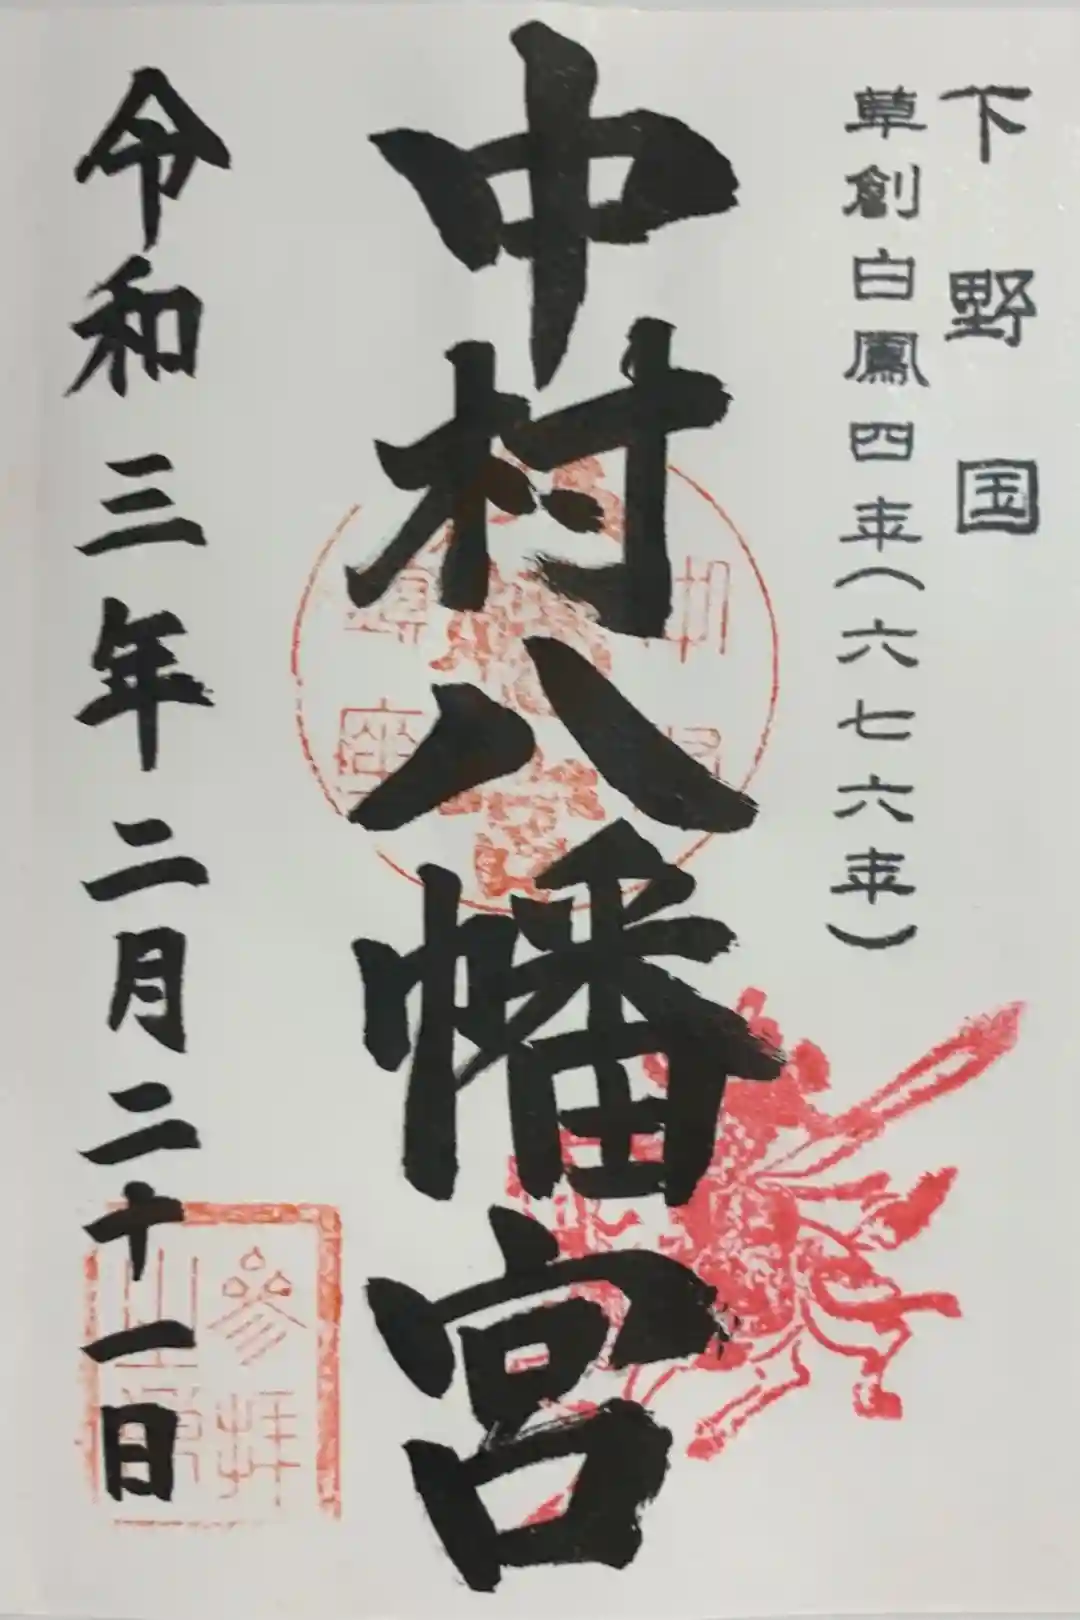 下野国
草創白鳳四年(六七六年)
中村八幡宮
令和三年二月二十一日
参拝